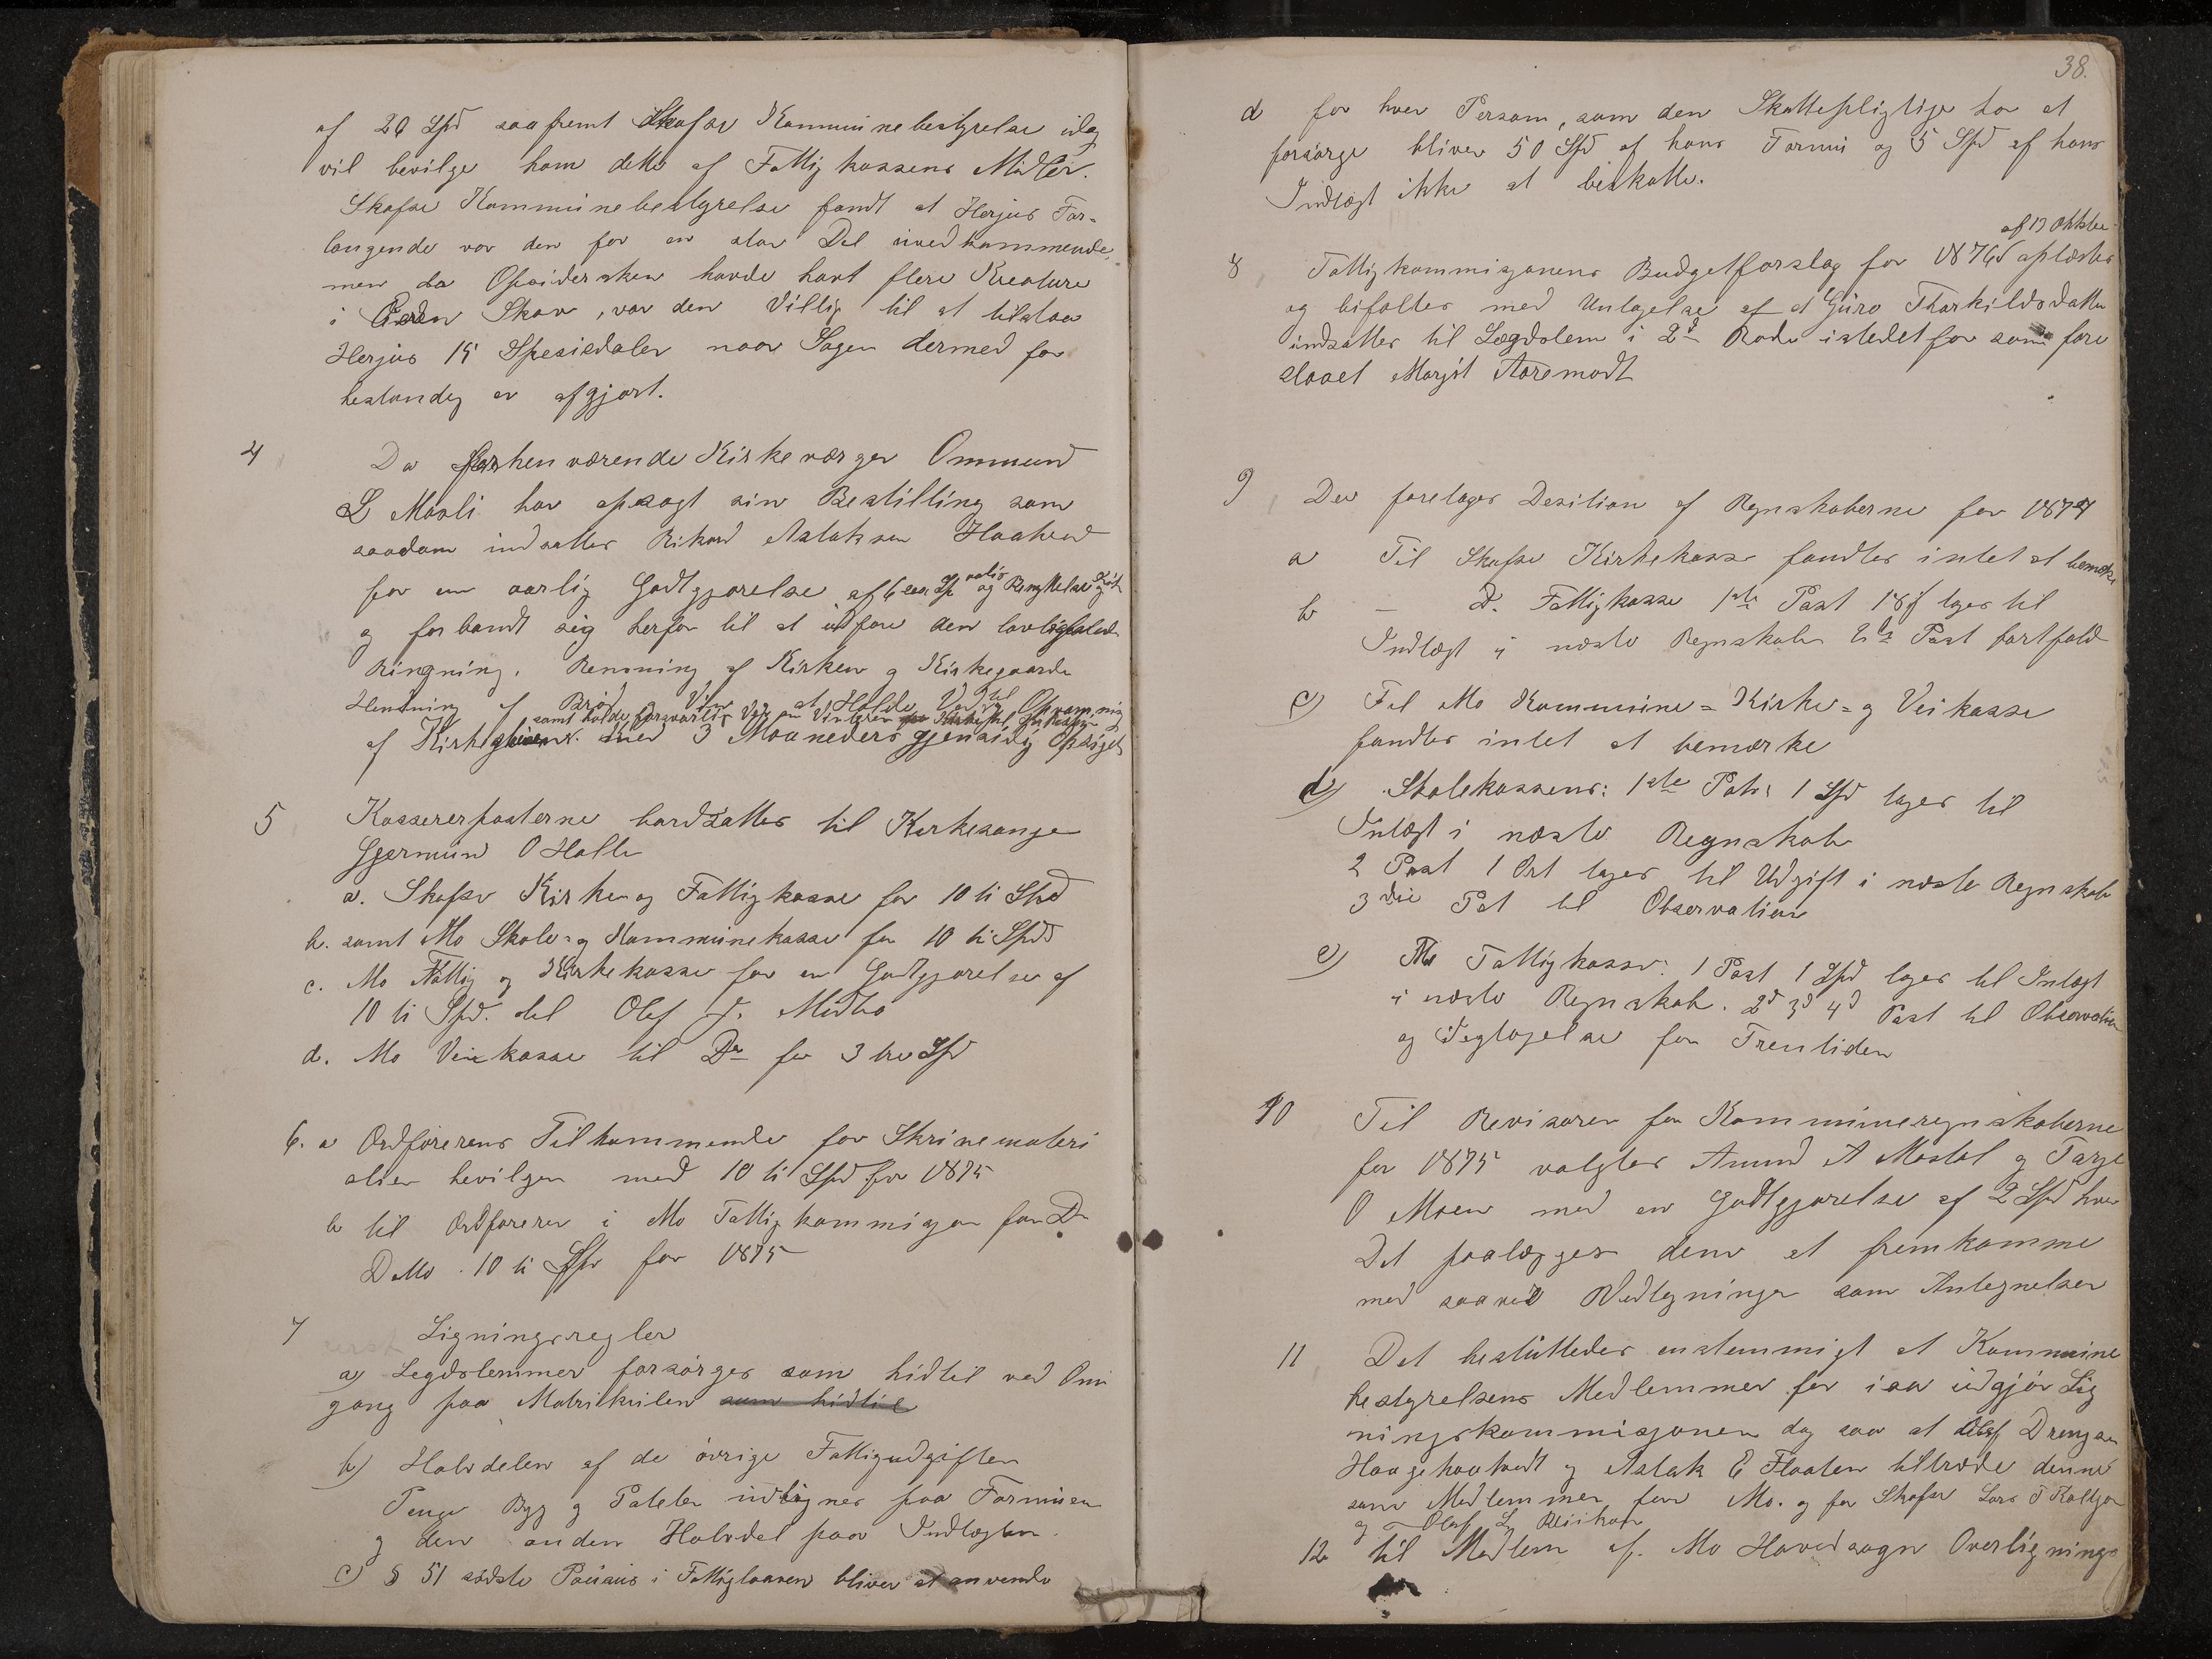 af 20 Spd saafremt Skafse Kommunebestyrelse idag
vil bevilge ham dette af Fattigkassens Midler.
Skafse Kommunebestyrelse fandt at Herjus For-
langende var den for en stor Del uvedkommende,
men da Opsidersken havde havt flere Kreature
i Skov, var den Villig til at tilstaa
Herjus 15 Spesiedaler naar Sagen dermed for
bestandig er afgjort.
4 Da forhenværende Kirkeværger Ommund
L Mosli har opsagt sin Bestilling som
saadan indsattes Rikard Aslaksen Haatved
for en aarlig Godtgjørelse af 6 sex Sp
og forbandt sig herfor til at udføre den
Ringning, Rensning af Kirken og Kirkegaarde
Hentning af Brød og Vin at Holde Ved til Opvarmnig
samt holde forsvarlig Vej om Vinteren
af Kirken med 3 Maaneders gjensidig Opsigels
5 Kassererposterne bordsattes til Kirkesanger
Gjermund O Halle
a. Skafse Kirke og Fattigkasse for 10 ti Spd
b. samt Mo Skole- og Kommunekasse for 10 ti Spd
c. Mo Fattig og Kirkekasse for en Godtgjørelse af
10 ti Spd. til Olaf J. Midbø
d. Mo Veikasse til Do for 3 tre Spd
6. a Ordførerens Tilkommende for Skrinemateri
alier bevilges med 10 ti Spd for 1875
b til Ordfører i Mo Fattigkommisjon for Do
Ditto 10 ti Spd for 1875
7 Ligningsregler
a) Legdslemmer forsørges som hidtil ved Om
gang paa Matrikulen som hidtil
b) Halvdelen af de øvrige Fattigudgifter
Penge Byg og Poteter udlignes paa Formuen
og den anden Halvdel paa Indtægten.
c) § 51 sidste Pasus i Fattigloven bliver at anvende
38.
d for hver Person, som den Skattepligtige har at
forsørge bliver 50 Spd af hans Formu og 5 Spd af hans
Indtægt ikke at beskatte.
af 17 Oktober
8 Fattigkommisjonens Budgetforslag for 1876 oplæstes
og bifaltes med Untagelse af at Guro Tharkildsdatter
indsattes til Lægdslem i 2d Rode istedetfor som fore
slaaet Margit Aaremodt
9 Der foretages Desition af Regnskaberne for 1874
a Til Skafse Kirkekasse fandtes intet at bemærke
b — D. Fattigkasse 1ste Post 18 tages til
Indtægt i næste Regnskab 2de Post bortfald
c) Til Mo Kommune- Kirke- og Veikasse
fandtes intet at bemærke
d) Skolekassens: 1ste Post 1 Spd tages til
Intægt i næste Regnskab
2 Post 1 Ort tages til Udgift i næste Regnskab
3die Pst til Observation
e) Mo Fattigkasse: 1 Post 1 Spd tages til Intægt
i næste Regnskab. 2d 3d 4d Post til Observation
og Iagtagelse for Fremtiden
10 Til Revisorer for Kommuneregnskaberne
for 1875 valgtes Amund A Mostøl og Targe
O Moen med en Godtgjørelse af 2 Spd hver
Det paalægges dem at fremkomme
med saavel Vedtegninger som Antegnelser
11 Det besluttedes enstemmigt at Kommune
bestyrelsens Medlemmer for iaar udgjør Lig
ningskommisjonen dog saa at Olaf Drengsen
Haugehaatvedt og Aslak E Flaaten tiltræde denne
som Medlemmer for Mo. og for Skafse Lars T
og Olaf L
12 til Medlem af Mo Hovedsogn Overlignings